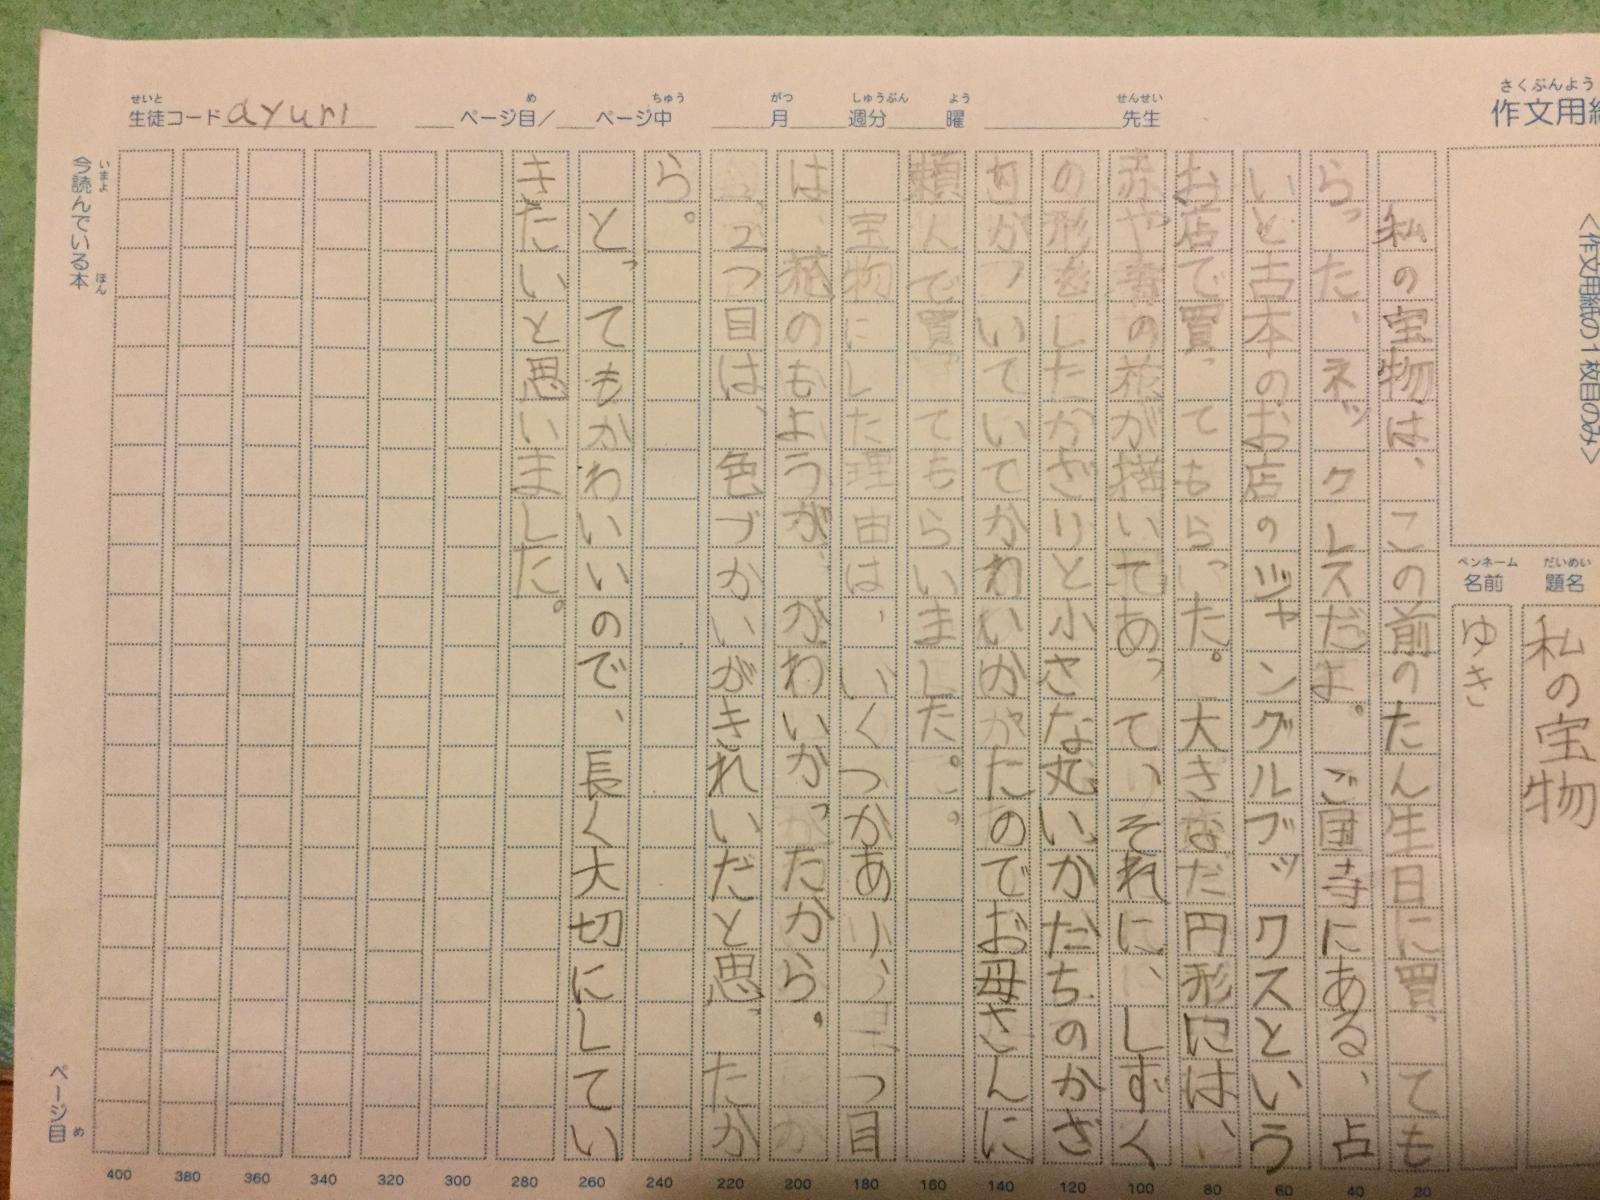 さくぶんよう
作文用紙
<作文用紙の1枚目のみ>
せいと
生徒コード ayuri
め
ちゅう
ページ目/ ページ中
がつ しゅうぶん よう
月 週分 曜
せんせい
先生
だいめい
題名
私の宝物
ペンネーム
名前
ゆき
私の宝物は、この前のたん生日に買っても
らった、ネックレスだよ。ご国寺にある、占
いと古本のお店のジャングルブックスという
お店で買ってもらった。大きなだ円形には、
赤や青の花が描いてあって、それに、しずく
の形をしたかざりと小さな丸いかたちのかざ
りがついていてかわいかったのでお母さんに
頼んで買ってもらいました。
宝物にした理由は、いくつかあり、一つ目
は、花のもようが、かわいかったから。
2つ目は、色づかいがきれいだと思ったか
ら。
とってもかわいいので、長く大切にしてい
きたいと思いました。
いまよ ほん
今読んでいる本
ページ目
め
400 380 360 340 320 300 280 260 240 220 200 180 160 140 120 100 80 60 40 20